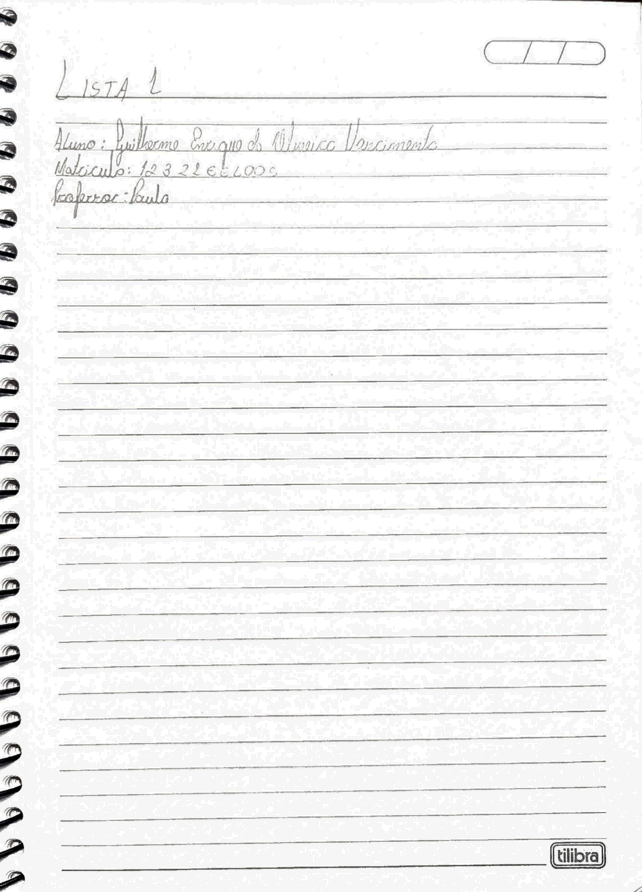 LISTA 1
Aluno: Guilherme Enrique de Oliveira Nascimento
Matricula:
Professor: Paulo
tilibra